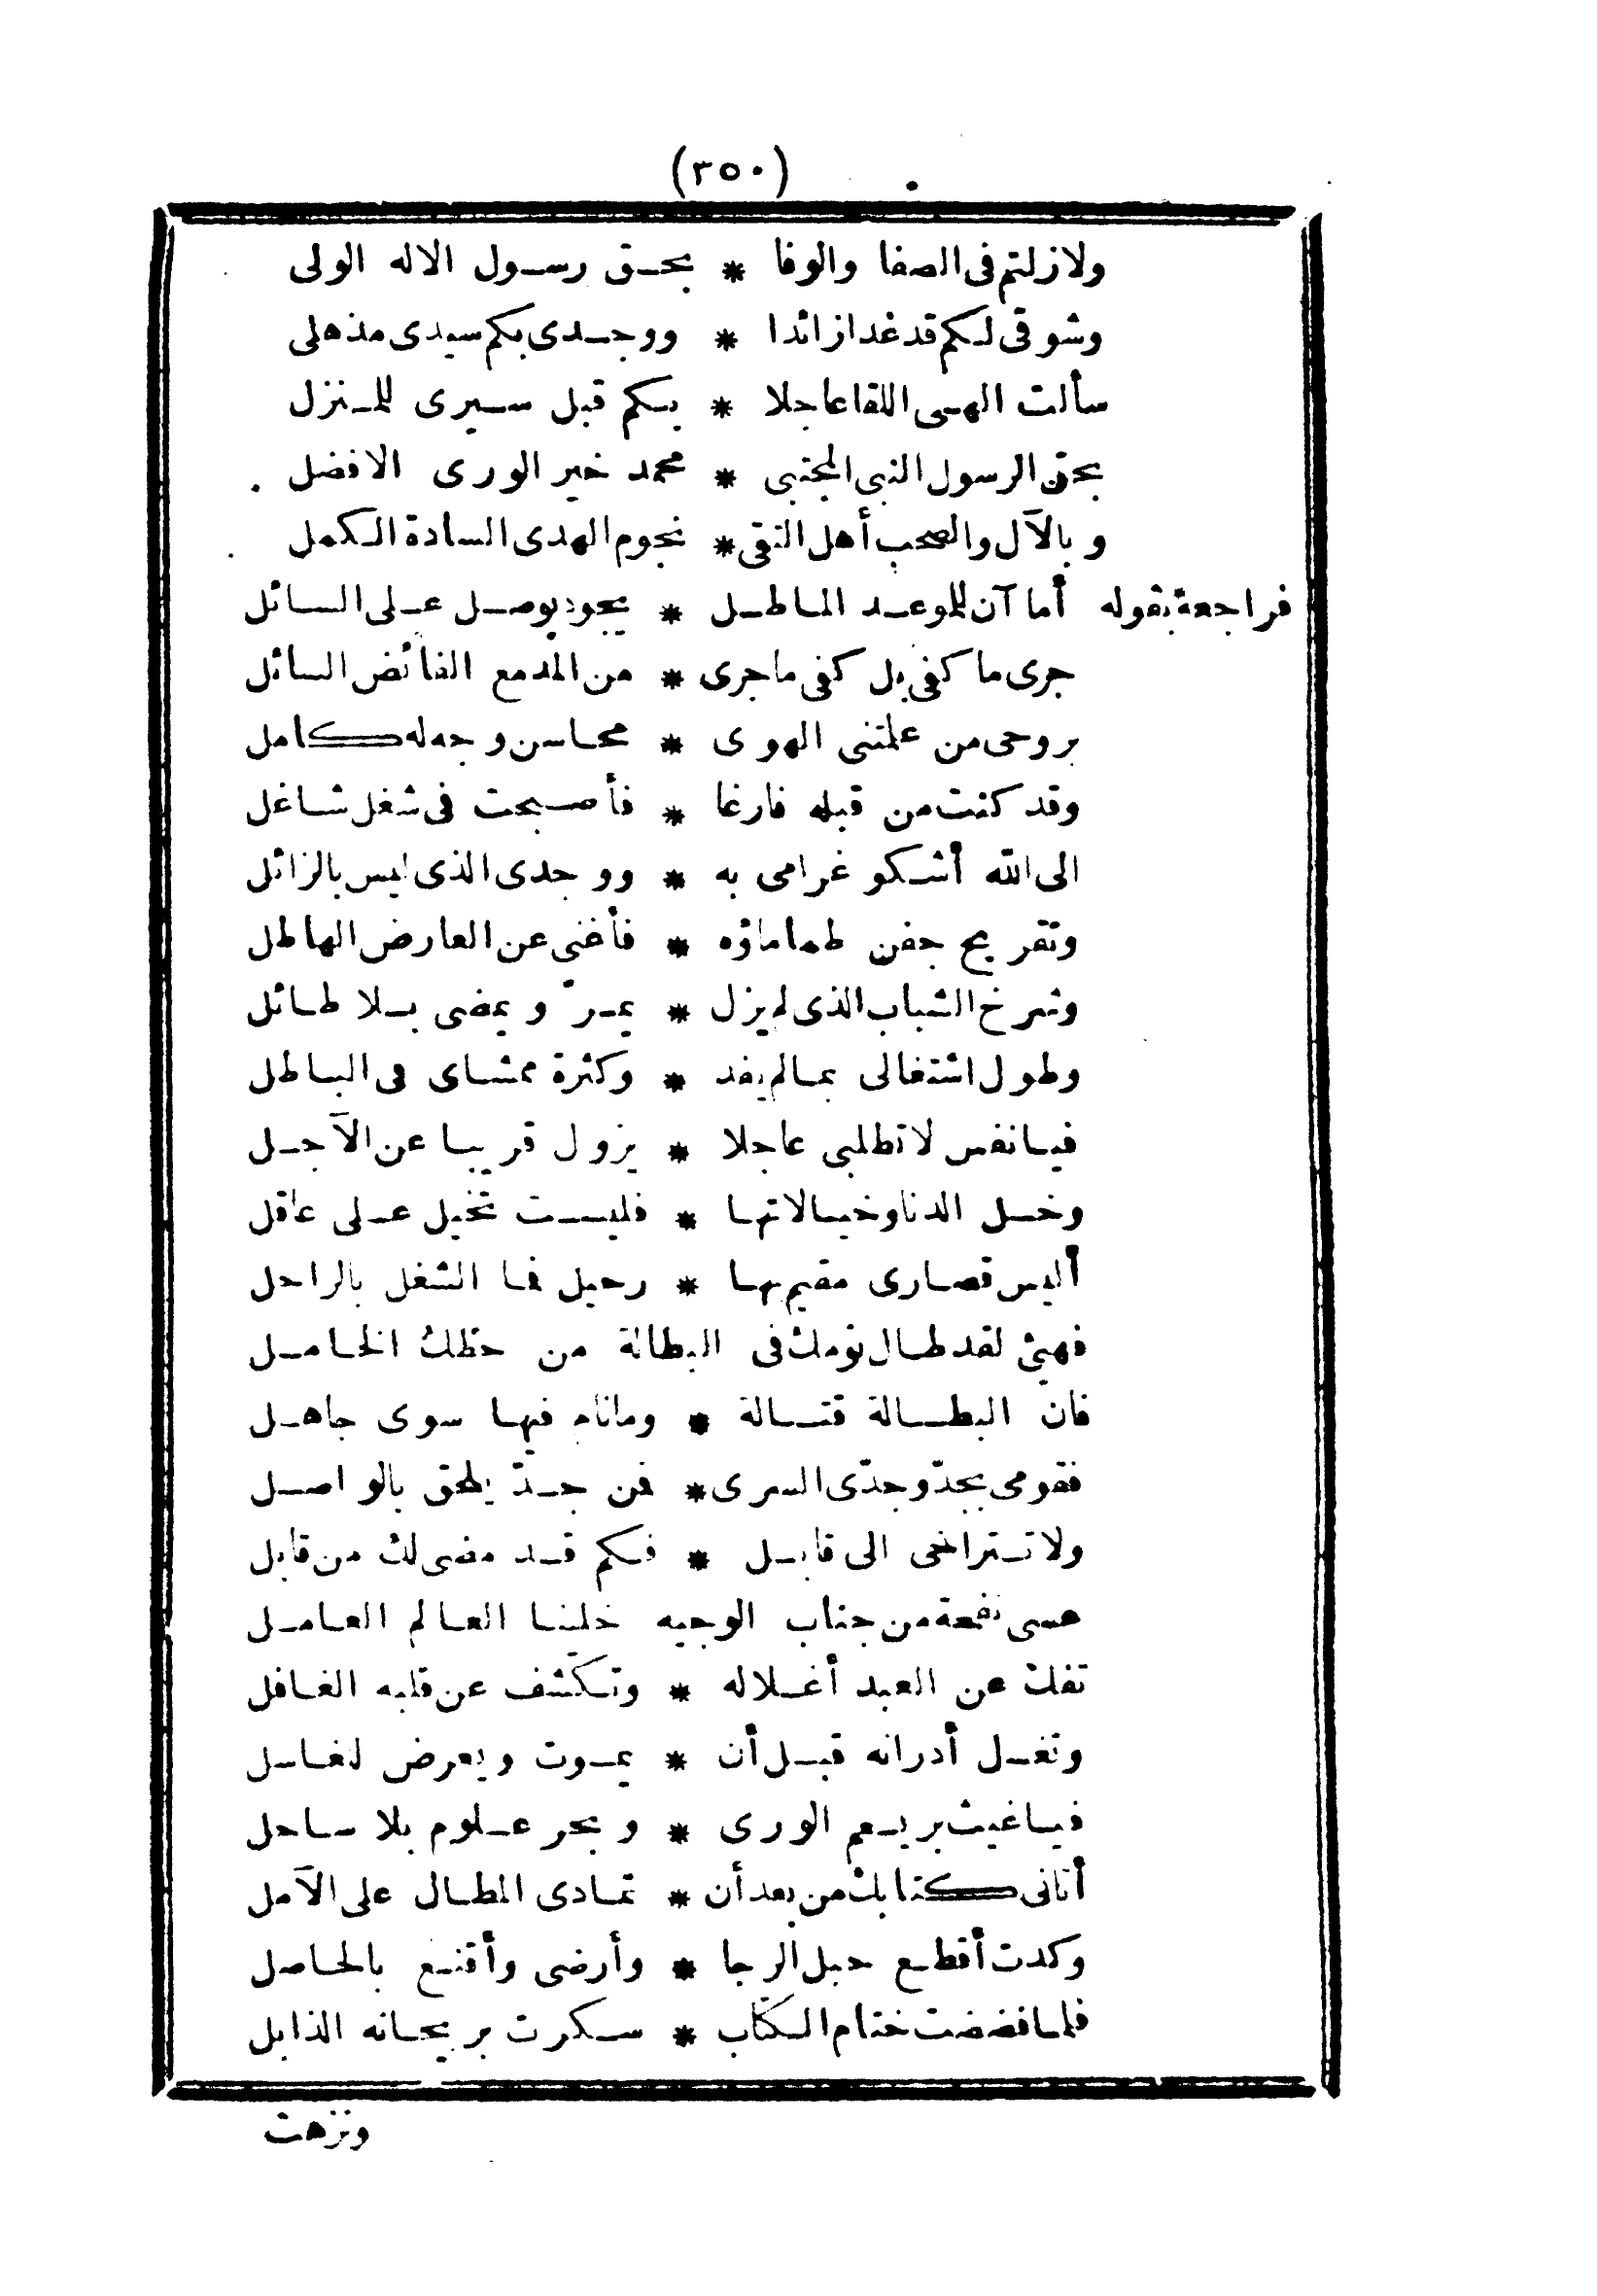 (٣٥٠)
ولازلتم فى الصفا والوفا * بحق رسول الاله الولى
وشوقى لكم قد غدا زائدا * ووجدى بكم سيدى مذهلى
سألت الهى اللقا عاجلا * بكم قبل سيرى للمنزل
بحق الرسول النبى المجتبى * محمد خير الورى الافضل
وبالآل والصحب أهل التقى * نجوم الهدى السادة الكمل
فراجعه بقوله أما آن للموعد الماطل * يجود بوصل على السائل
جرى ما كفى بل كفى ما جرى * من المدمع الفائض السائل
بروحى من علمتنى الهوى * محاسن وجه له كامل
وقد كنت من قبله فارغا * فأصبحت فى شغل شاغل
الى الله أشكو غرامى به * ووجدى الذى ليس بالزائل
وتقريح جفن طما ماؤه * فأغنى عن العارض الهاطل
وشرخ الشباب الذى لم يزل * يمرّ ويمضى بلا طائل
وطول اشتغالى بما لم يفد * وكثرة ممشاى فى الباطل
فيا نفس لا تطلبى عاجلا * يزول قريبا عن الآجل
وخل الدنا وخيالاتها * فليست تخيل على عاقل
أليس قصارى مقيم بها * رحيل فما الشغل بالراحل
فهبى لقد طال نومك فى البطالة من حظك الخامل
فان البطالة قتالة * وما نام فيها سوى جاهل
فقومى بجدّ وجدّى السرى * فمن جدّ يلحق بالواصل
ولا تتراخى الى قابل * فكم قد مضى لك من قابل
عسى نفحة من جناب الوجيه خلينا العالم العامل
تفك عن العبد أغلاله * وتكشف عن قلبه الغافل
وتغسل أدرانه قبل أن * يموت ويعرض لغاسل
فيا غيث بر يعم الورى * وبحر علوم بلا ساحل
أتانى كتابك من بعد أن * تمادى المطال على الآمل
وكدت أقطع حبل الرجا * وأرضى وأقنع بالحاصل
فلما فضضت ختام الكتاب * سكرت بريحانه الذابل
ونزهت